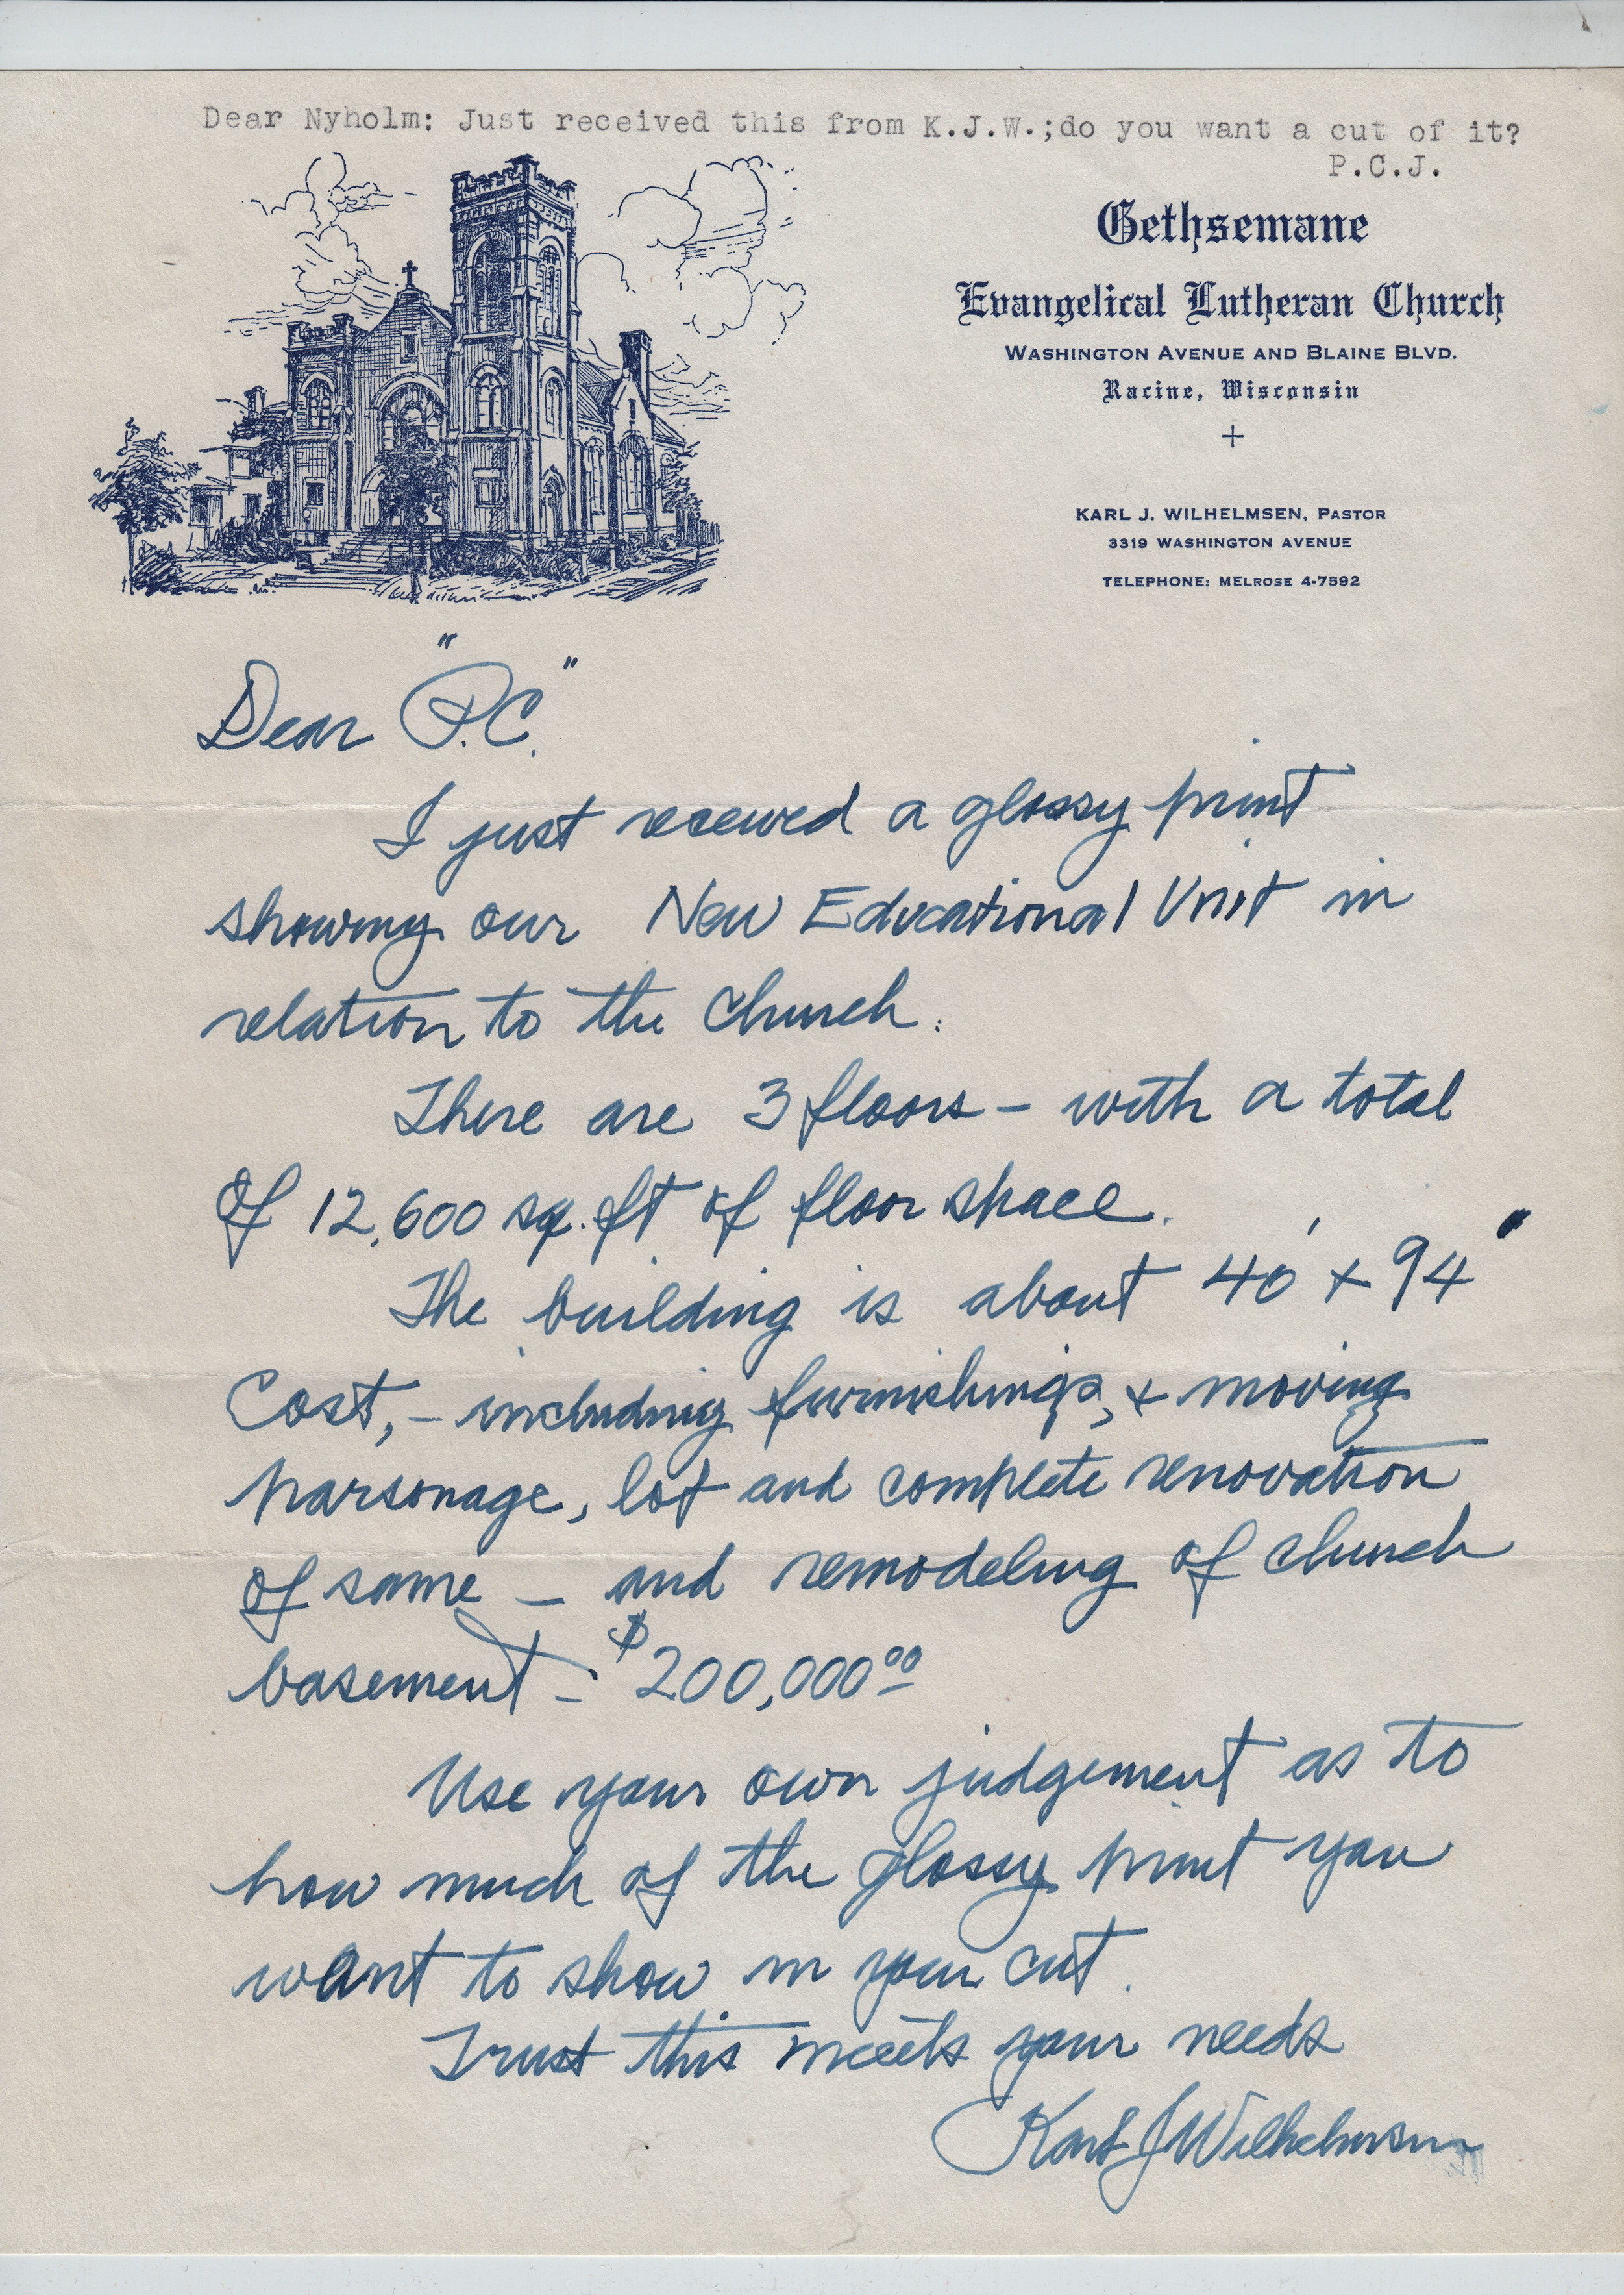 Dear Nyholm: Just received this from K.J.W.;do you want a cut of it?
P.C.J.
Gethsemane
Evangelical Lutheran Church
WASHINGTON AVENUE AND BLAINE BLVD.
Racine, Wisconsin
KARL J. WILHELMSEN, PASTOR
3319 WASHINGTON AVENUE
TELEPHONE: MELROSE 4-7592
Dear "P.C."
I just received a glossy print
showing our New Educational Unit in
relation to the church.
There are 3 floors – with a total
of 12,600 sq. ft of floor space.
The building is about 40' x 94"
Cost, – including furnishings, & moving
parsonage, lot and complete renovation
of same – and remodeling of church
basement – $200,000.00
Use your own judgement as to
how much of the glossy print you
want to show in your cut.
Trust this meets your needs
Karl J Wilhelmsen